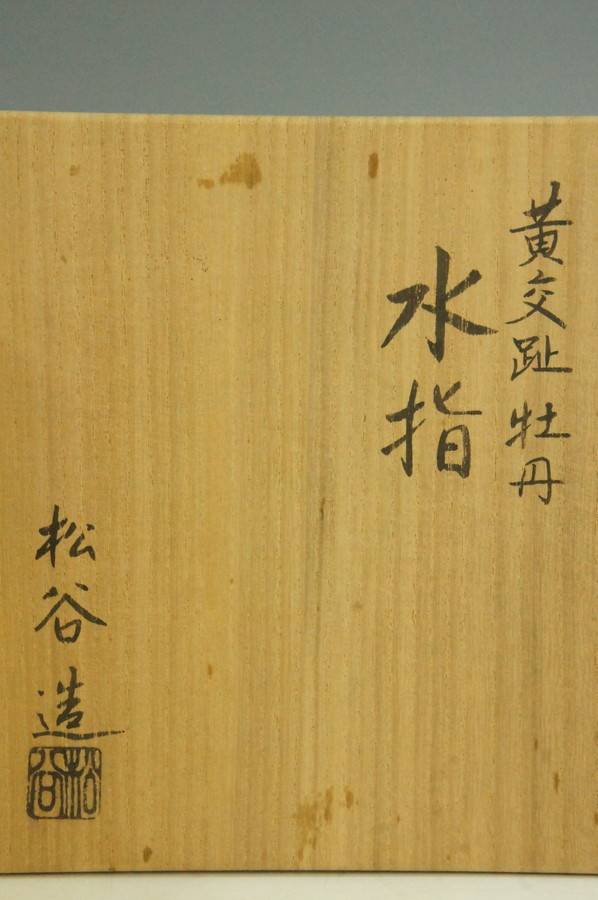 黄交趾牡丹
水指
松谷造
松谷